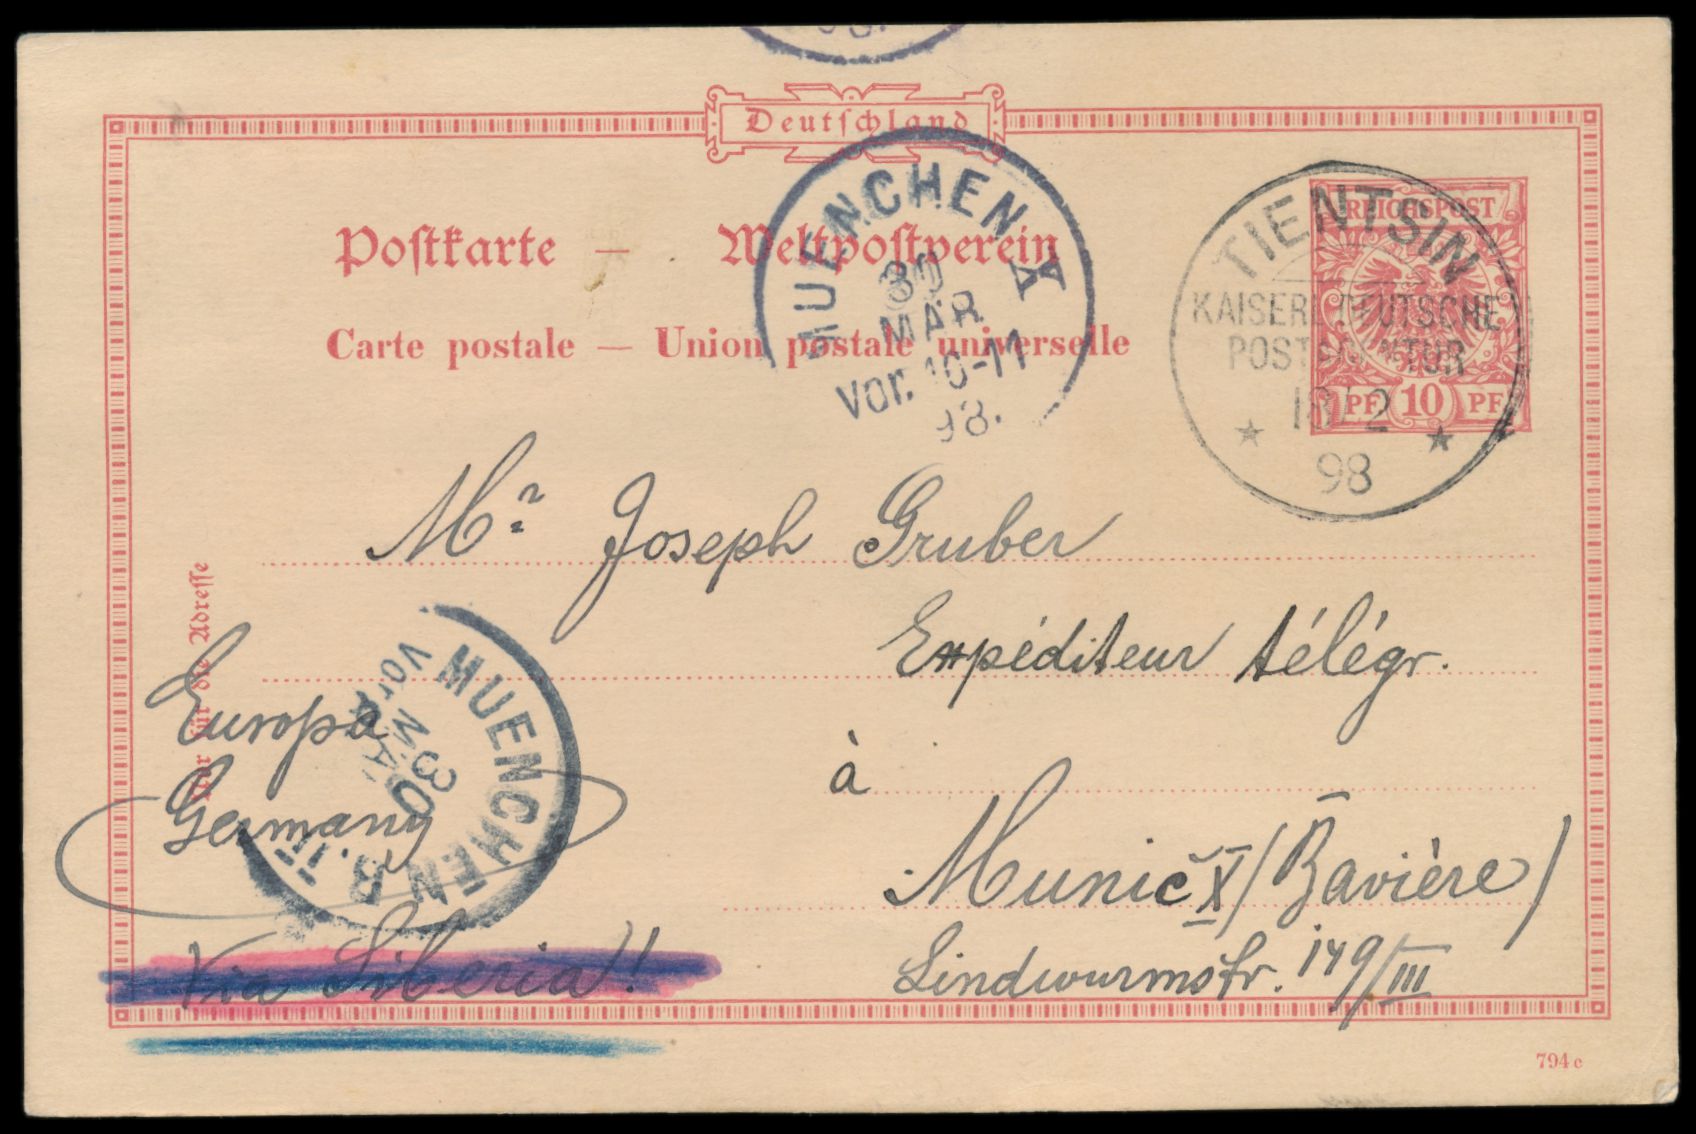 98.
Deutschland
Postkarte — Weltpostverein
Carte postale — Union postale universelle
MUENCHEN X
30
MÄR
Vor. 10-11
98.
REICHSPOST
PF 10 PF
TIENTSIN
KAISERL. DEUTSCHE
POSTAGENTUR
18/2
98
Mr Joseph Gruber
Expéditeur télégr.
à
Munic X/(Bavière)
Lindwurmstr. 149/III
Nur für die Adresse
Europa
Germany
Via Siberia!
MUENCHEN B.II
30
MÄR
Vor.
794 c